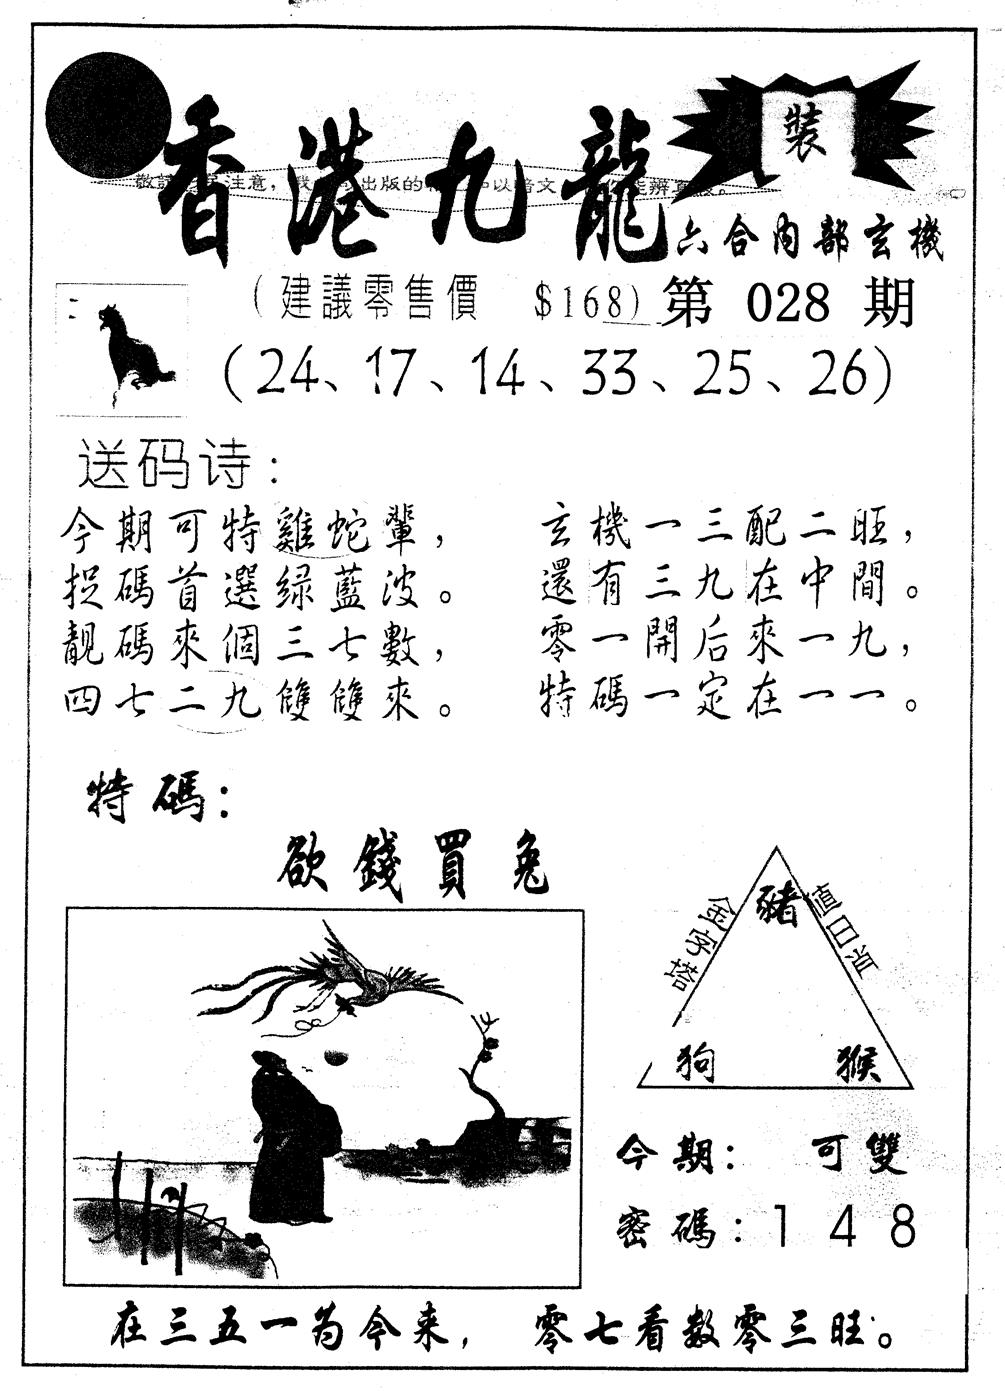 香港九龍
裝
六合内部玄機
(建議零售價 $168) 第 028 期
(24、17、14、33、25、26)
送码诗:
今期可特雞蛇輩, 玄機一三配二旺,
捉碼首選绿藍波。 還有三九在中間。
靚碼來個三七數, 零一開后來一九,
四七二九雙雙來。 特碼一定在一一。
特碼:
欲錢買兔
豬
金字塔 值日肖
狗 猴
今期: 可雙
密碼:1 4 8
在三五一为今来, 零七看数零三旺。